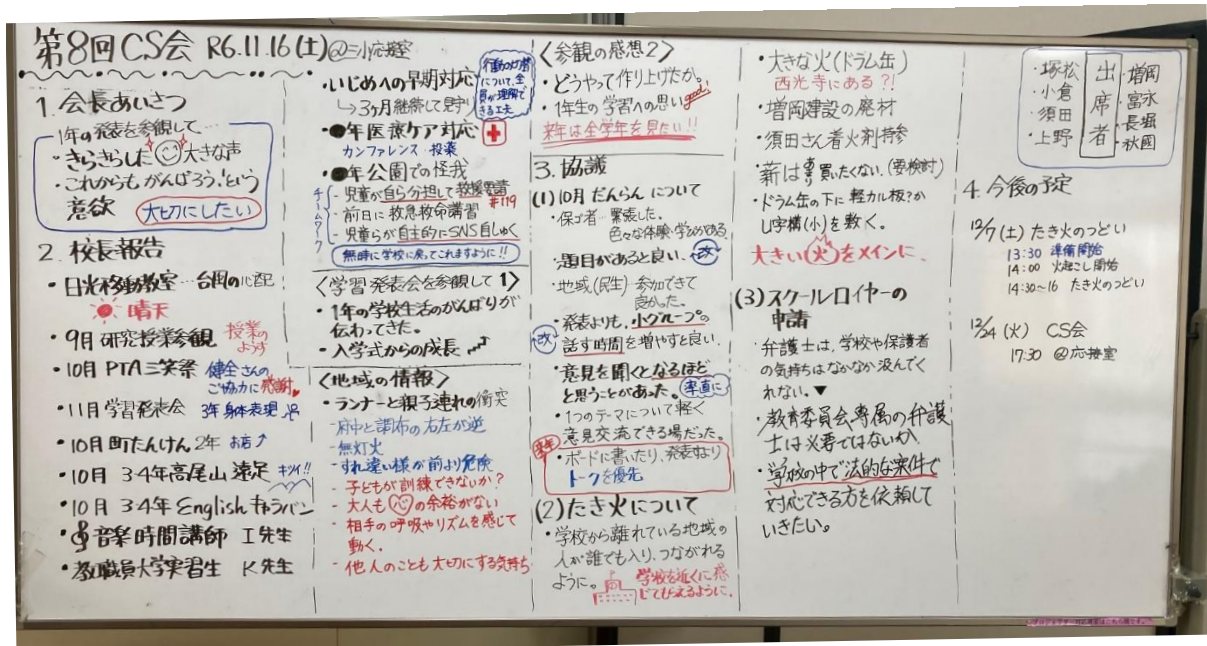 第8回CS会 R6.11.16(土)@三小応接室
1. 会長あいさつ
1年の発表を参観して
・きらきらした 大きな声
・これからもがんばろう、という
意欲 大切にしたい
2. 校長報告
・日光移動教室…台風の心配
晴天
・9月 研究授業参観 授業のようす
・10月 PTA三笑祭 健全さんのご協力に感謝
・11月学習発表会 3年 身体表現
・10月 町たんけん 2年 お店
・10月 3・4年高尾山遠足 キツイ!!
・10月 3・4年Englishキャラバン
・音楽時間講師 I先生
・教職員大学実習生 K先生
・いじめへの早期対応
↳3ヶ月継続して見守り
行動の対応
について、全
員が理解で
きる工夫
・●年医療ケア対応
カンファレンス・投薬
・●年公園での怪我
チームワーク
- 児童が自ら分担して救援要請
#119
- 前日に救急救命講習
- 児童らが自主的にSNS自しゅく
無時に学校に戻ってこれますように!!
〈学習発表会を参観して1〉
・1年の学校生活のがんばりが
伝わってきた。
・入学式からの成長
〈地域の情報〉
・ランナーと親子連れの衝突
-府中と調布の右左が逆
-無灯火
-すれ違い様が前より危険
- 子どもが訓練できないか?
- 大人も心の余裕がない
- 相手の呼吸やリズムを感じて
動く。
- 他人のことも大切にする気持ち
〈参観の感想2〉
・どうやって作り上げたか。
・1年生の学習への思い good!
来年は全学年を見たい!!
3. 協議
(1)10月 だんらん について
・保ゴ者…緊張した。
色々な体験・学びがある
・題目があると良い。 改
・地域(民生)…参加できて
良かった。
・発表よりも、小グループの
改 話す時間を増やすと良い。
・意見を聞くとなるほど
と思うことがあった。 率直に
・1つのテーマについて軽く
意見交流できる場だった。
来年
・ボードに書いたり、発表より
トークを優先
(2)たき火について
・学校から離れている地域の
人が誰でも入り、つながれる
ように。 学校を近くに感
じてもらえるように。
・大きな火(ドラム缶)
西光寺にある?!
・増岡建設の廃材
・須田さん着火剤持参
・薪は買いたくない(要検討)
・ドラム缶の下に軽カル板?か
U字構(小)を敷く。
大きい火をメインに、
(3)スクールロイヤーの
申請
・弁護士は、学校や保護者
の気持ちはなかなか汲んでく
れない。▼
・教育委員会専属の弁護
士は必要ではないか
・学校の中で法的な案件で
対応できる方を依頼して
いきたい。
出席者
・塚松
・小倉
・須田
・上野
・増岡
・富永
・長堀
・秋國
4. 今後の予定
12/7(土) たき火のつどい
13:30 準備開始
14:00 火起こし開始
14:30~16 たき火のつどい
12/24(火) CS会
17:30 @応接室